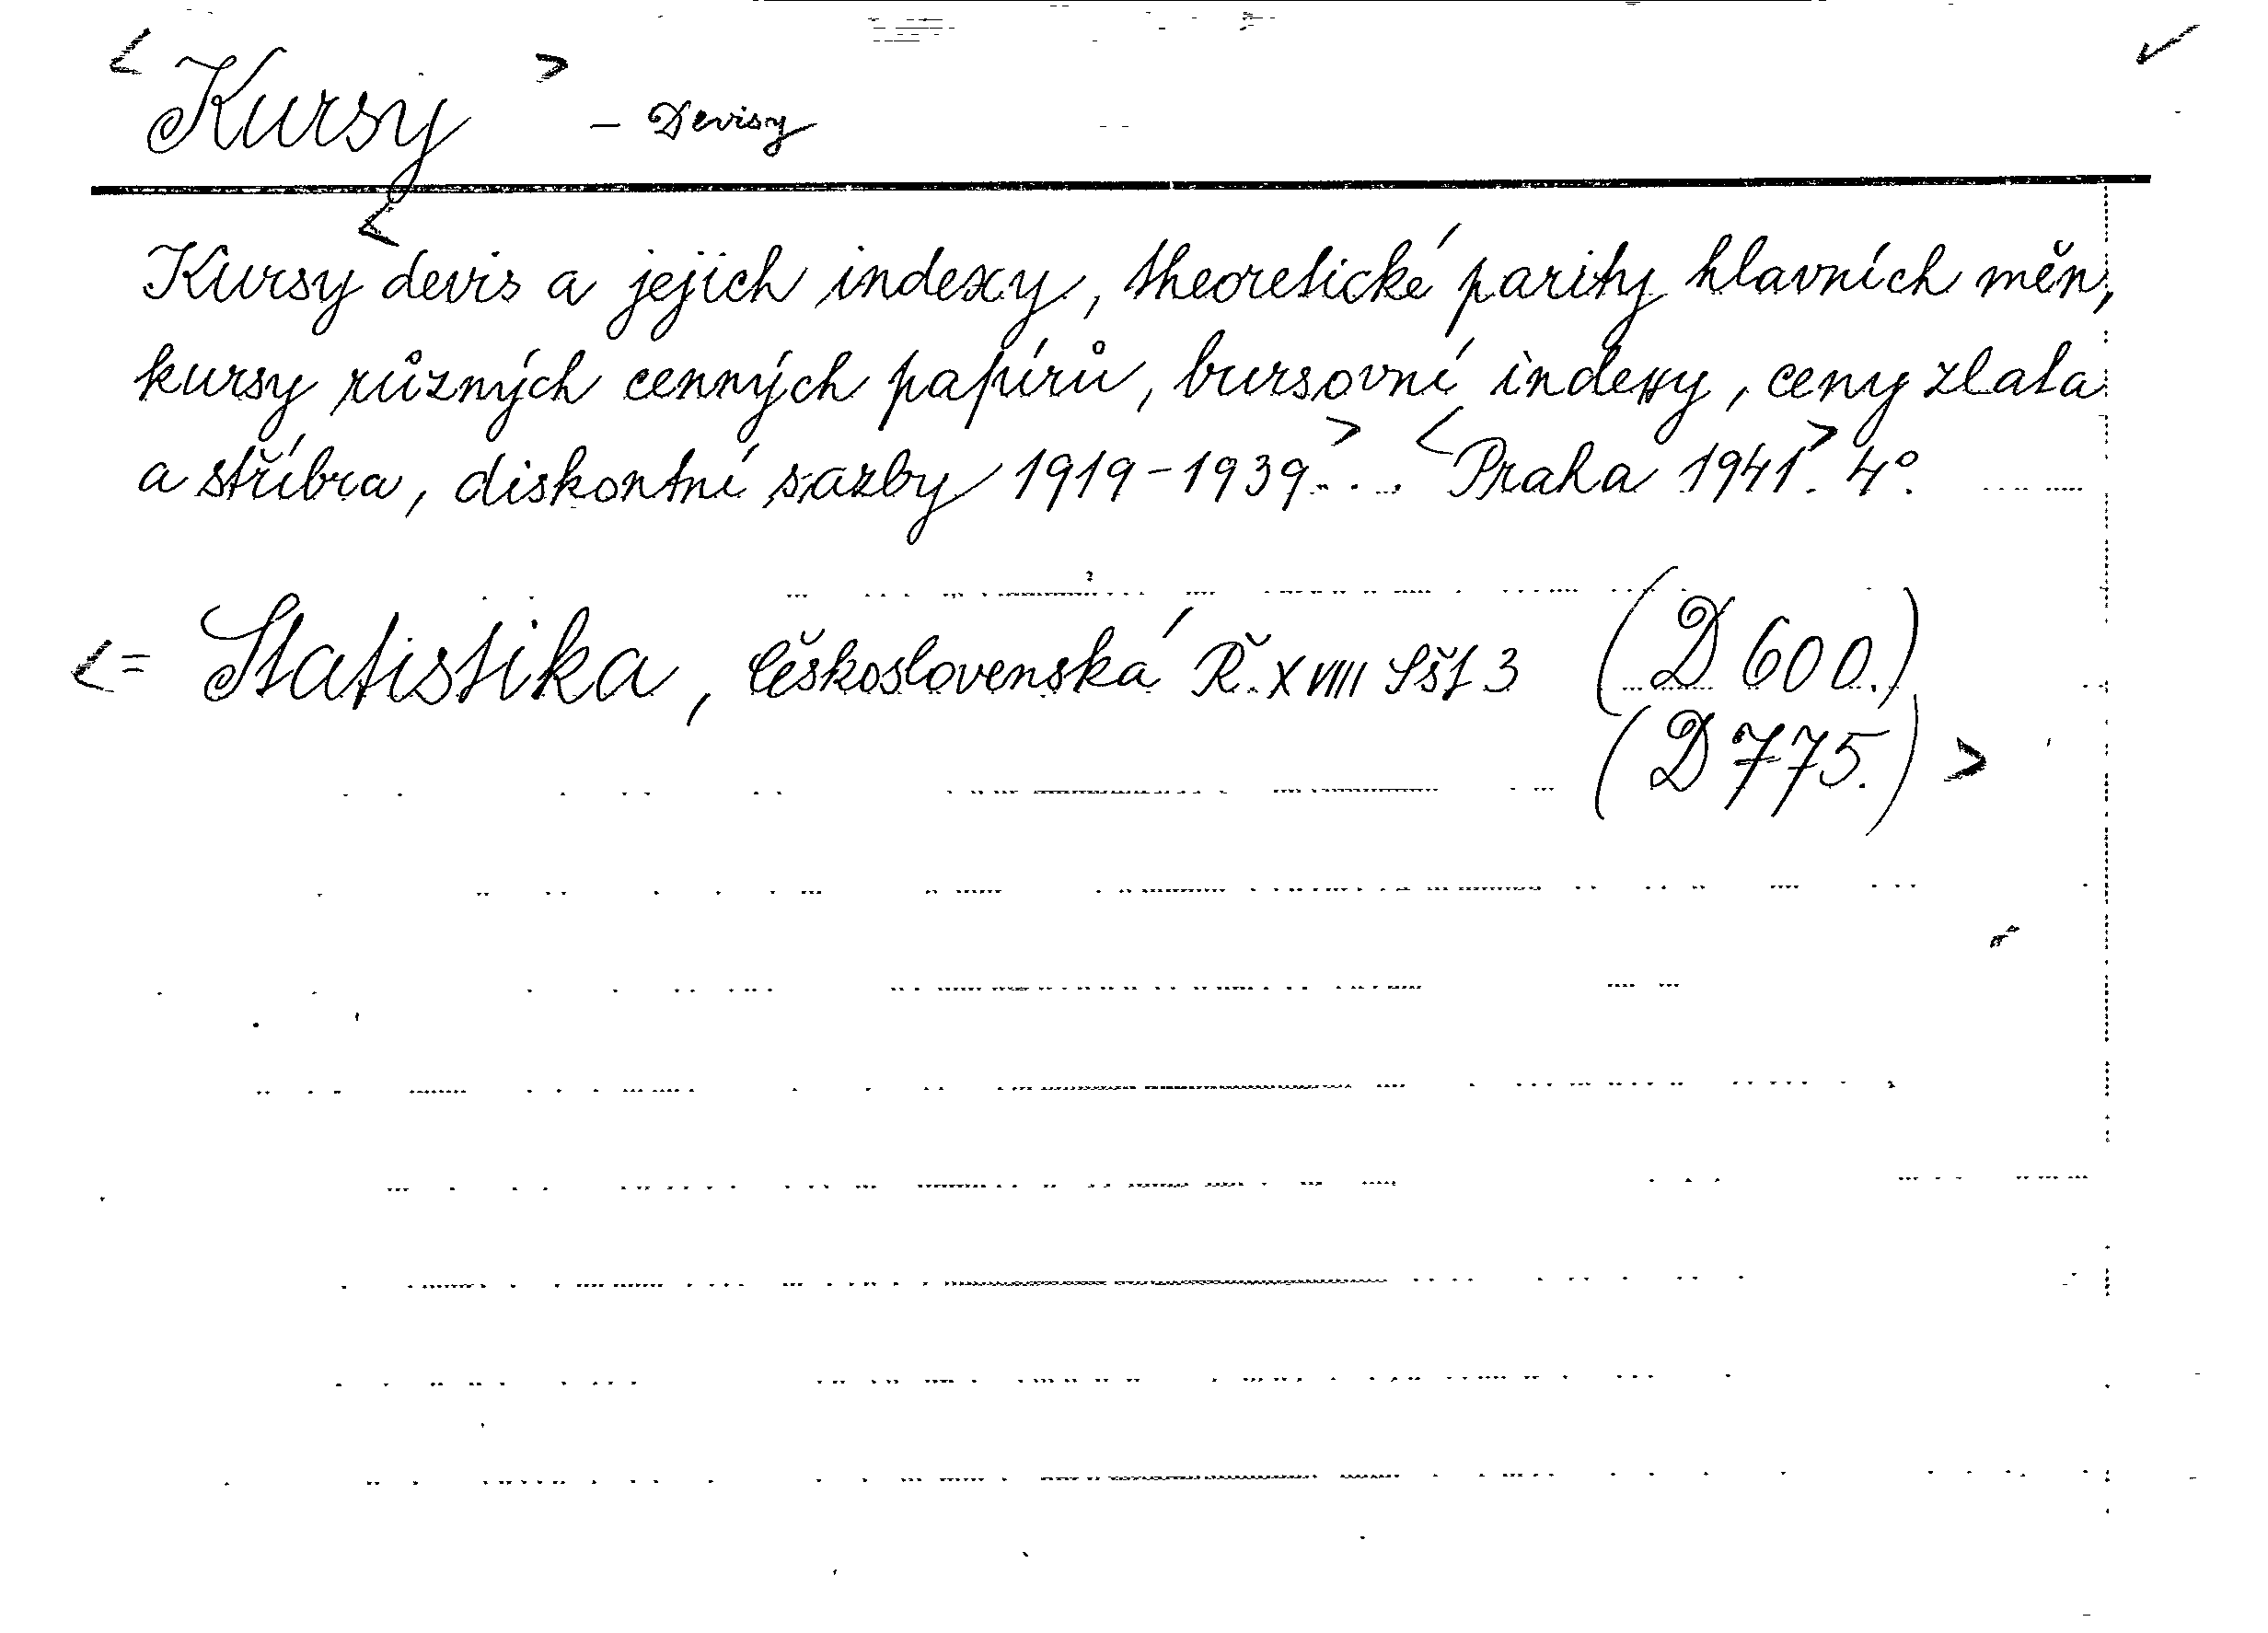 < Kursy > - Devisy ✓
< Kursy devis a jejich indexy, theoretické parity hlavních měn,
kursy různých cenných papírů, bursovní indexy, ceny zlata
a stříbra, diskontní sazby 1919-1939. > . . < Praha 1941. > 4°.
< = Statistika, Československá Ř. XVIII Sš1 3 (D 600.)
(D 775.) >